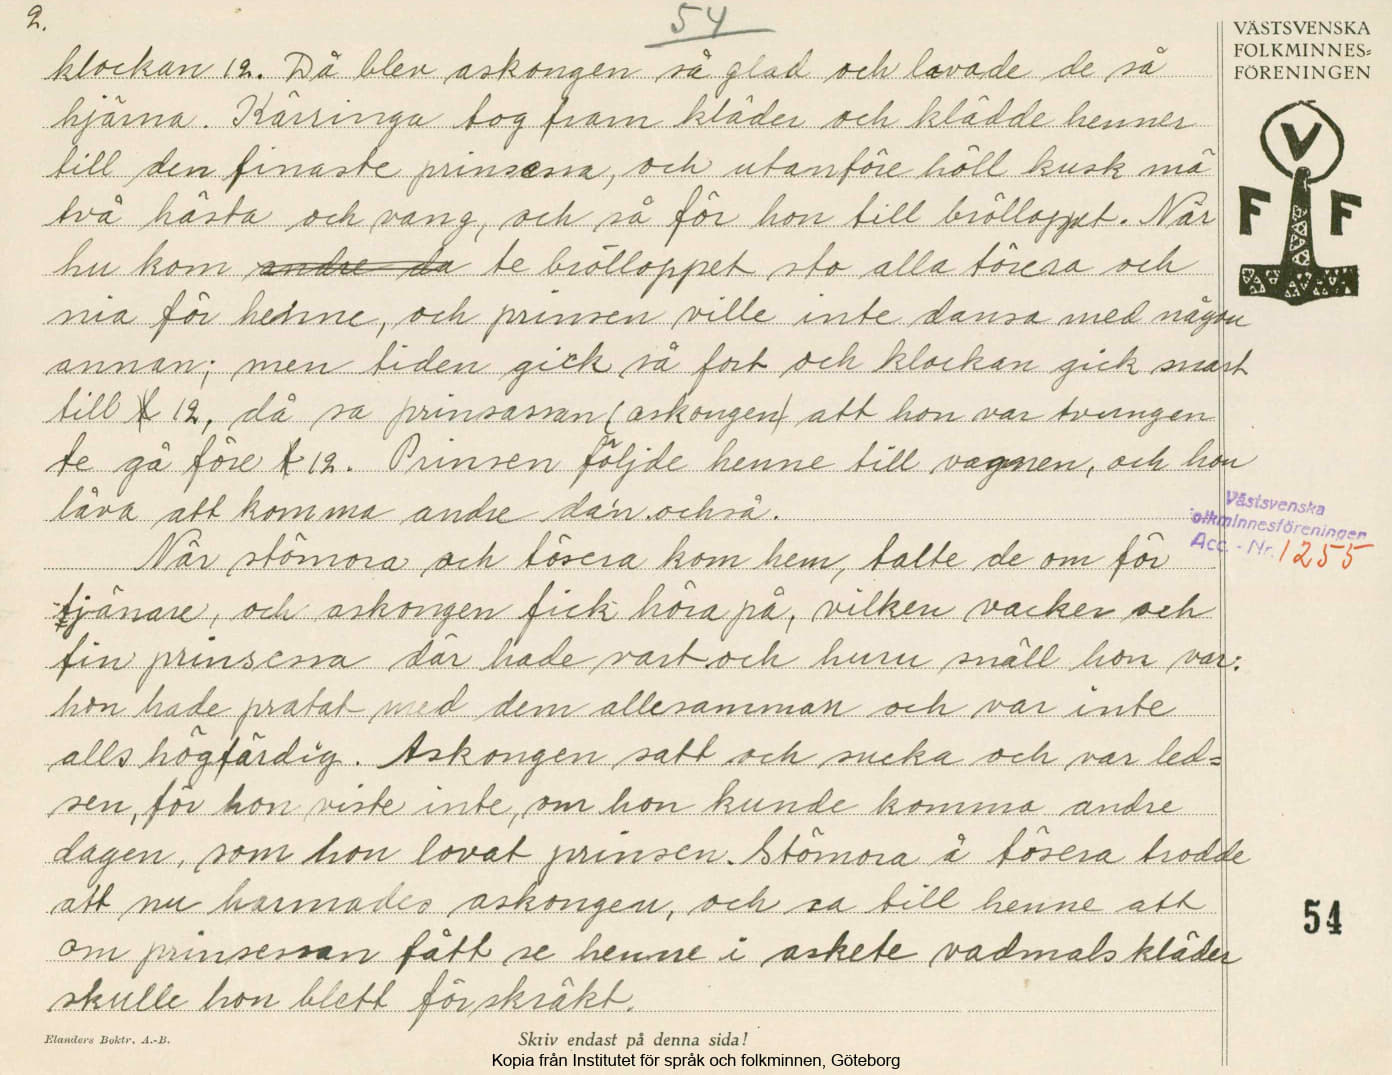 2.
54
VÄSTSVENSKA
FOLKMINNES-
FÖRENINGEN
V
F F
klockan 12. Då blev askongen så glad och lovade de så
hjärna. Kärringa tog fram kläder och klädde henner
till den finaste prinsessa, och utanföre höll kusk mä
två hästa och vang, och så för hon till brölloppet. När
hu kom andre da te brölloppet sto alla tösera och
nia för heinne, och prinsen ville inte dansa med någon
annan; men tiden gick så fort och klockan gick snart
till 12, då sa prinsassan (askongen) att hon var tvungen
te gå före 12. Prinsen följde henne till vagnen, och hon
låva att komma andre da'n också.
När stömora och tösera kom hem, talte de om för
tjänare, och askongen fick höra på, vilken vacker och
fin prinsessa där hade vart och huru snäll hon var:
hon hade pratat med dem allesamman och var inte
alls högfärdig. Askongen satt och sucka och var led=
sen, för hon viste inte, om hon kunde komma andre
dagen, som hon lovat prinsen. Stömora å tösera trodde
att nu harmades askongen, och sa till henne att
om prinsessan fått se henne i askete vadmals kläder
skulle hon blett förskräkt.
Västsvenska
olkminnesföreningen
Acc. - Nr. 1255
54
Elanders Boktr. A.-B.
Skriv endast på denna sida!
Kopia från Institutet för språk och folkminnen, Göteborg